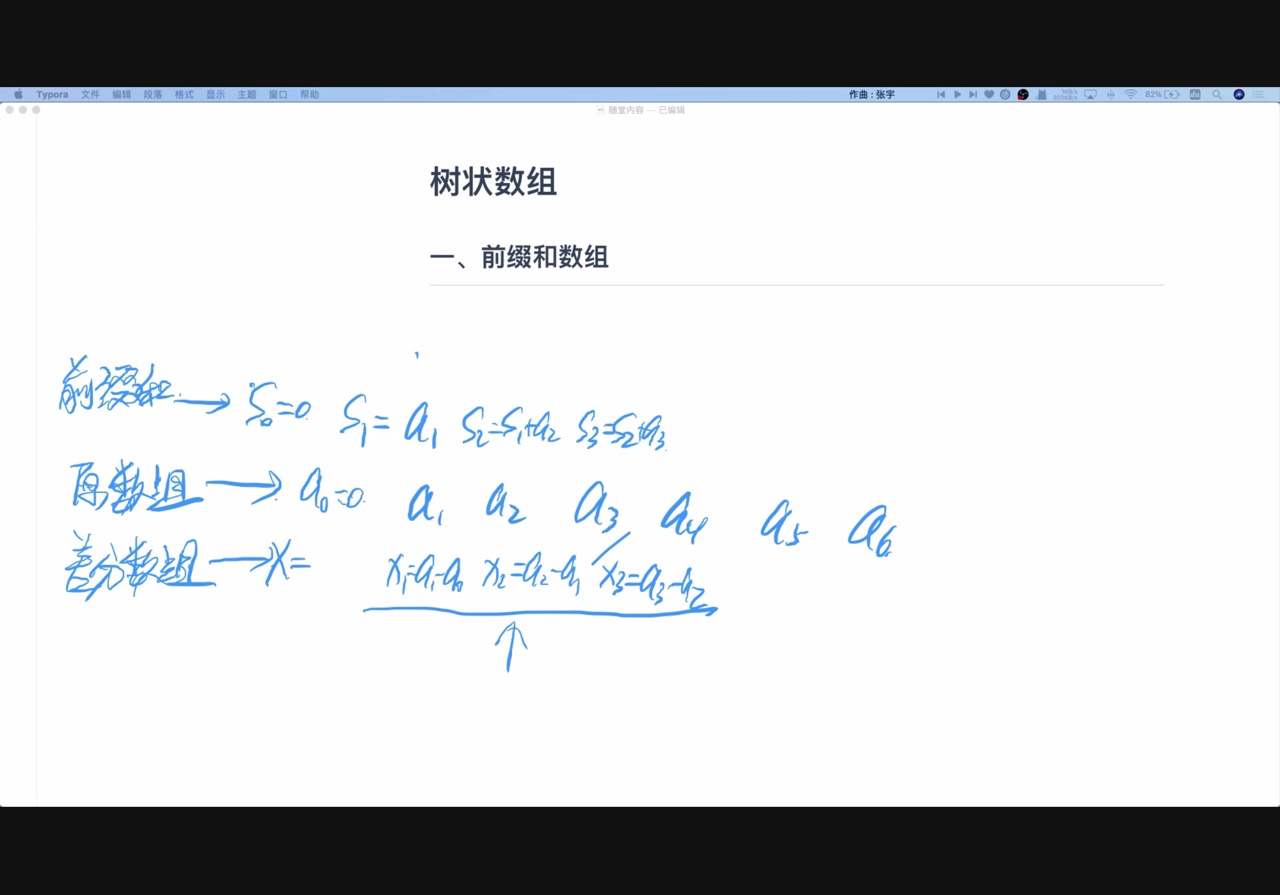 Typora 文件 编辑 段落 格式 显示 主题 窗口 帮助 作曲 : 张宇 82%
随堂内容 — 已编辑
树状数组
一、前缀和数组
前缀和 → S₀=0 S₁=a₁ S₂=S₁+a₂ S₃=S₂+a₃
原数组 → a₀=0 a₁ a₂ a₃ a₄ a₅ a₆
差分数组 → X= X₁=a₁-a₀ X₂=a₂-a₁ X₃=a₃-a₂